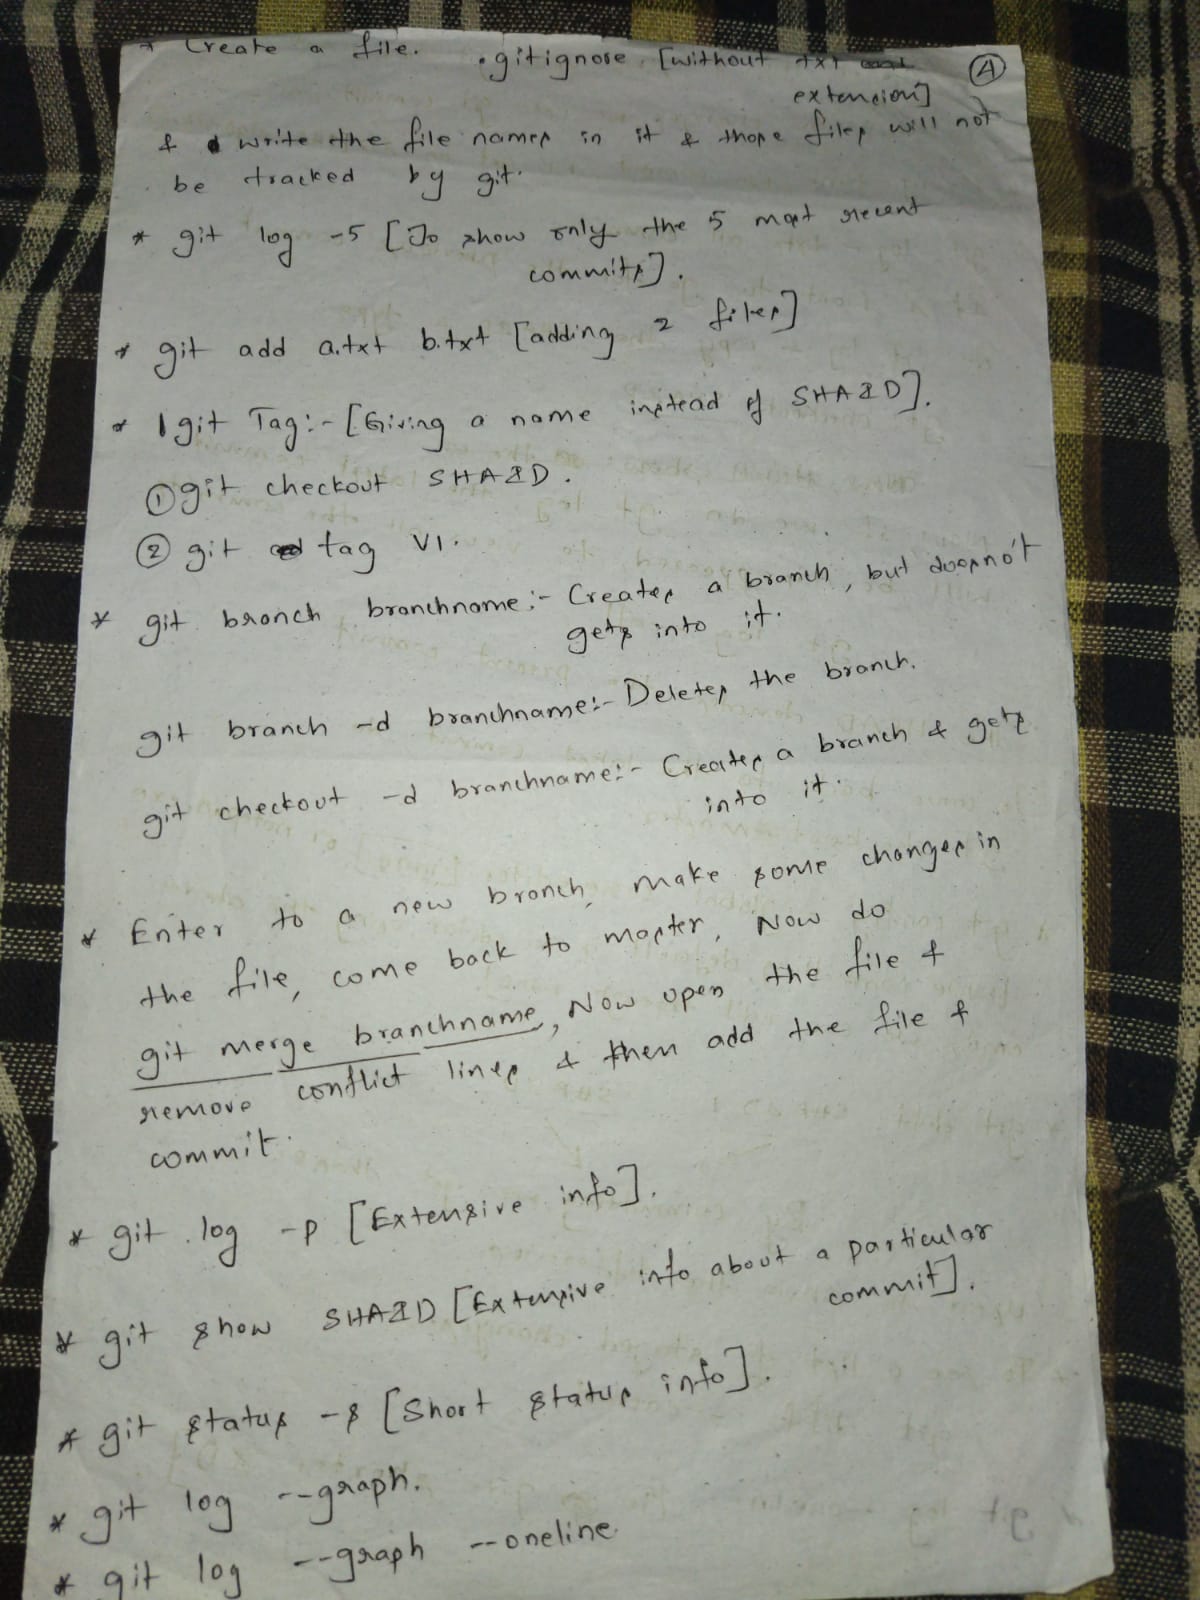 * Create a file. .gitignore [without txt
extencion]
& write the file names in it & those files will not
be tracked by git.
* git log -5 [To show only the 5 most recent
commits].
* git add a.txt b.txt [adding 2 files]
* git Tag:- [Giving a name instead of SHAID].
① git checkout SHAID.
② git tag V1.
* git branch branchname:- Creates a branch, but doesno't
gets into it.
git branch -d branchname:- Deletes the branch.
git checkout -d branchname:- Creates a branch & gets
into it.
* Enter to a new branch, make some changes in
the file, come back to master, Now do
git merge branchname, Now open the file &
remove conflict lines & then add the file &
commit.
* git log -p [Extensive info].
* git show SHAID [Extensive info about a particular
commit].
* git status -s [Short status info].
* git log --graph.
* git log --graph --oneline.
④